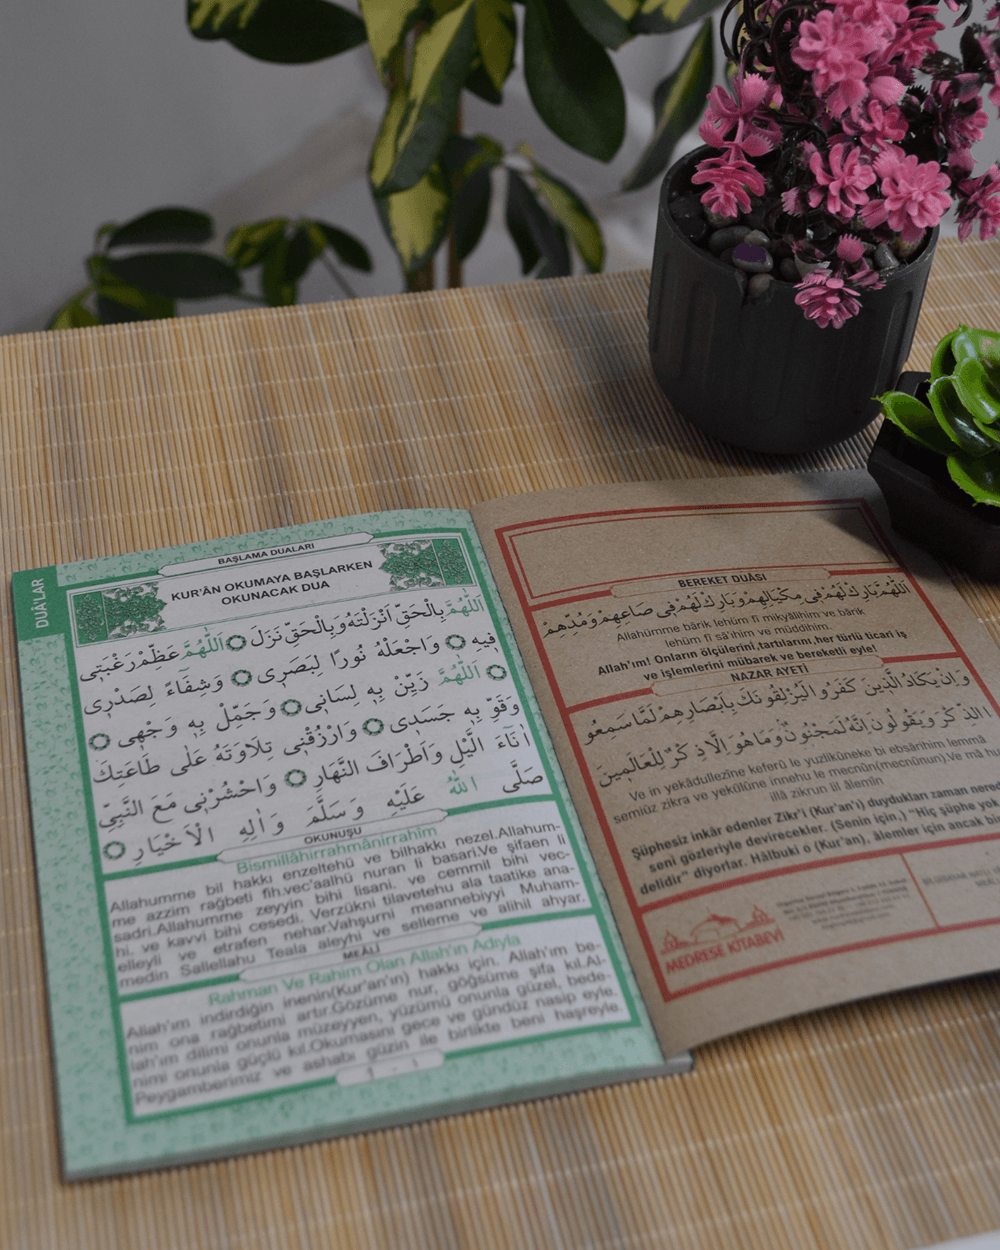 DUÂ'LAR
BAŞLAMA DUALARI
KUR'ÂN OKUMAYA BAŞLARKEN
OKUNACAK DUA
اَللّٰهُمَّ بِالْحَقِّ اَنْزَلْتَهُ وَبِالْحَقِّ نَزَلَ اَللّٰهُمَّ عَظِّمْ رَغْبَتِى
فِيهِ وَاجْعَلْهُ نُورًا لِبَصَرِى وَشِفَٓاءً لِصَدْرِى
اَللّٰهُمَّ زَيِّنْ بِهِ لِسَانِى وَجَمِّلْ بِهِ وَجْهِى
وَقَوِّ بِهِ جَسَدِى وَارْزُقْنِى تِلَاوَتَهُ عَلٰى طَاعَتِكَ
اٰنَٓاءَ الَّيْلِ وَاَطْرَافَ النَّهَارِ وَاحْشُرْنِى مَعَ النَّبِىِّ
صَلَّى اللّٰهُ عَلَيْهِ وَسَلَّمَ وَاٰلِهِ الْاَخْيَارِ
OKUNUŞU
Bismillâhirrahmânirrahim
Allahumme bil hakkı enzeltehü ve bilhakkı nezel.Allahum-
me azzim rağbeti fih.vec'aalhü nuran li basari.Ve şifaen li
sadri.Allahumme zeyyin bihi lisani. ve cemmil bihi vec-
hi. ve kavvi bihi cesedi. Verzükni tilavetehu ala taatike ana-
elleyli ve etrafen nehar.Vahşurni meannebiyyi Muham-
medin Sallellahu Teala aleyhi ve selleme ve alihil ahyar.
MEÂLİ
Rahman Ve Rahim Olan Allah'ın Adıyla
Allah'ım indirdiğin inenin(Kur'an'ın) hakkı için. Allah'ım be-
nim ona rağbetimi artır.Gözüme nur, göğsüme şifa kıl.Al-
lah'ım dilimi onunla müzeyyen, yüzümü onunla güzel, bede-
nimi onunla güçlü kıl.Okumasını gece ve gündüz nasip eyle.
Peygamberimiz ve ashabı güzin ile birlikte beni haşreyle.
BEREKET DUÂSI
اَللّٰهُمَّ بَارِكْ لَهُمْ فِى مِكْيَالِهِمْ وَبَارِكْ لَهُمْ فِى صَاعِهِمْ وَمُدِّهِمْ
Allahümme bârik lehüm fî mikyâlihim ve bârik
lehüm fî sâ'ihim ve müddihim.
Allah'ım! Onların ölçülerini,tartılarını,her türlü ticari iş
ve işlemlerini mübarek ve bereketli eyle!
NAZAR AYETİ
وَاِنْ يَكَادُ الَّذِينَ كَفَرُوا لَيُزْلِقُونَكَ بِاَبْصَارِهِمْ لَمَّا سَمِعُو
ا الذِّكْرَ وَيَقُولُونَ اِنَّهُ لَمَجْنُونٌ وَمَا هُوَ اِلَّا ذِكْرٌ لِلْعَالَمِينَ
Ve in yekâdullezîne keferû le yuzlikûneke bi ebsârihim lemmâ
semiûz zikra ve yekülûne innehu le mecnûn(mecnûnun).Ve mâ hu
illâ zikrun lil âlemîn
Şüphesiz inkâr edenler Zikr'i (Kur'an'ı) duydukları zaman nerec
seni gözleriyle devirecekler. (Senin için,) "Hiç şüphe yok
delidir" diyorlar. Hâlbuki o (Kur'an), âlemler için ancak bir
MEDRESE KİTABEVİ